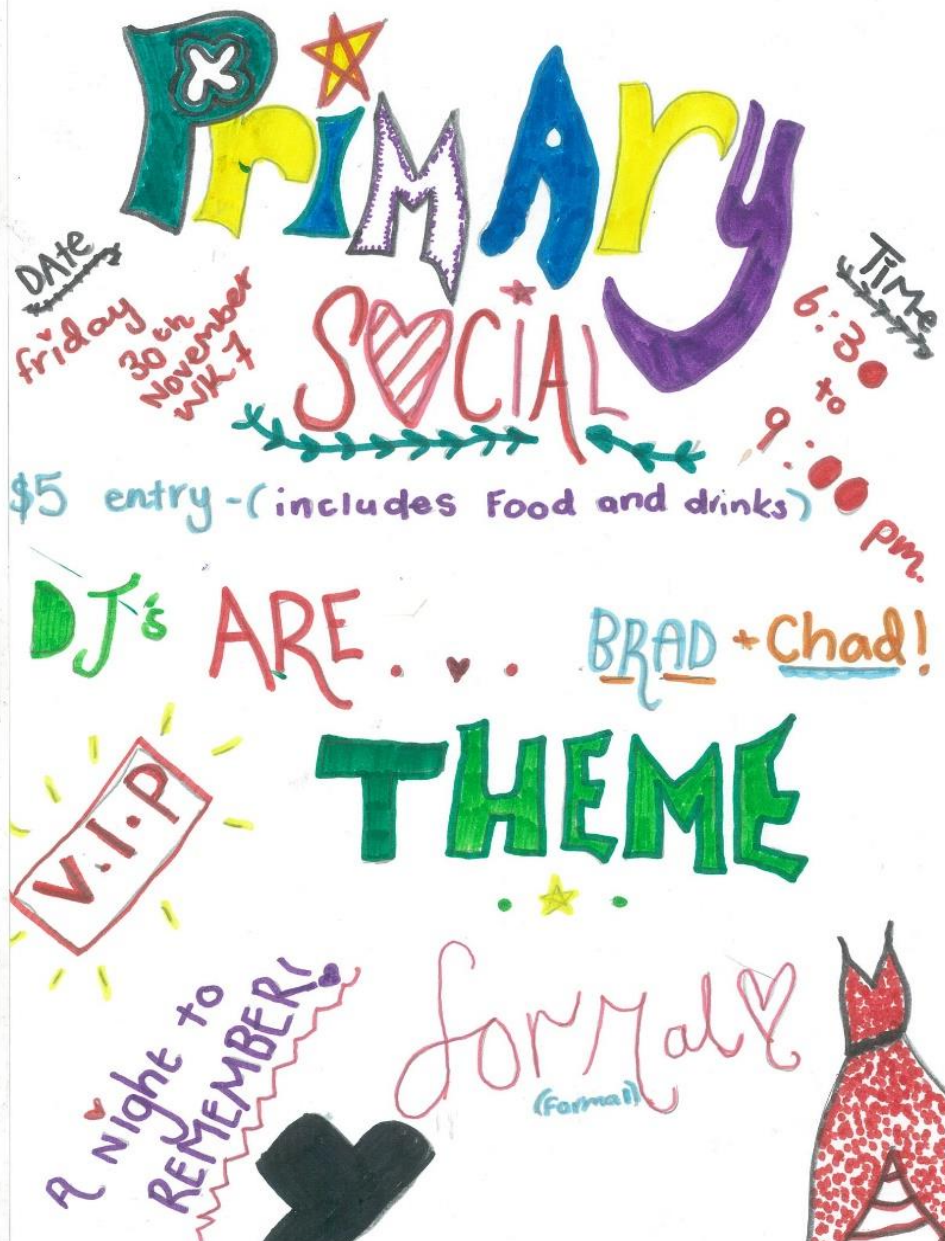 PriMAry
SOCIAL
DAte
friday
30th
November
WK 7
TiMe
6:30
to
9:00
pm.
$5 entry - (includes Food and drinks)
DJ's ARE . . . BRAD + Chad!
V.I.P
THEME
A Night to
REMEMBER!
formal
(Formal)